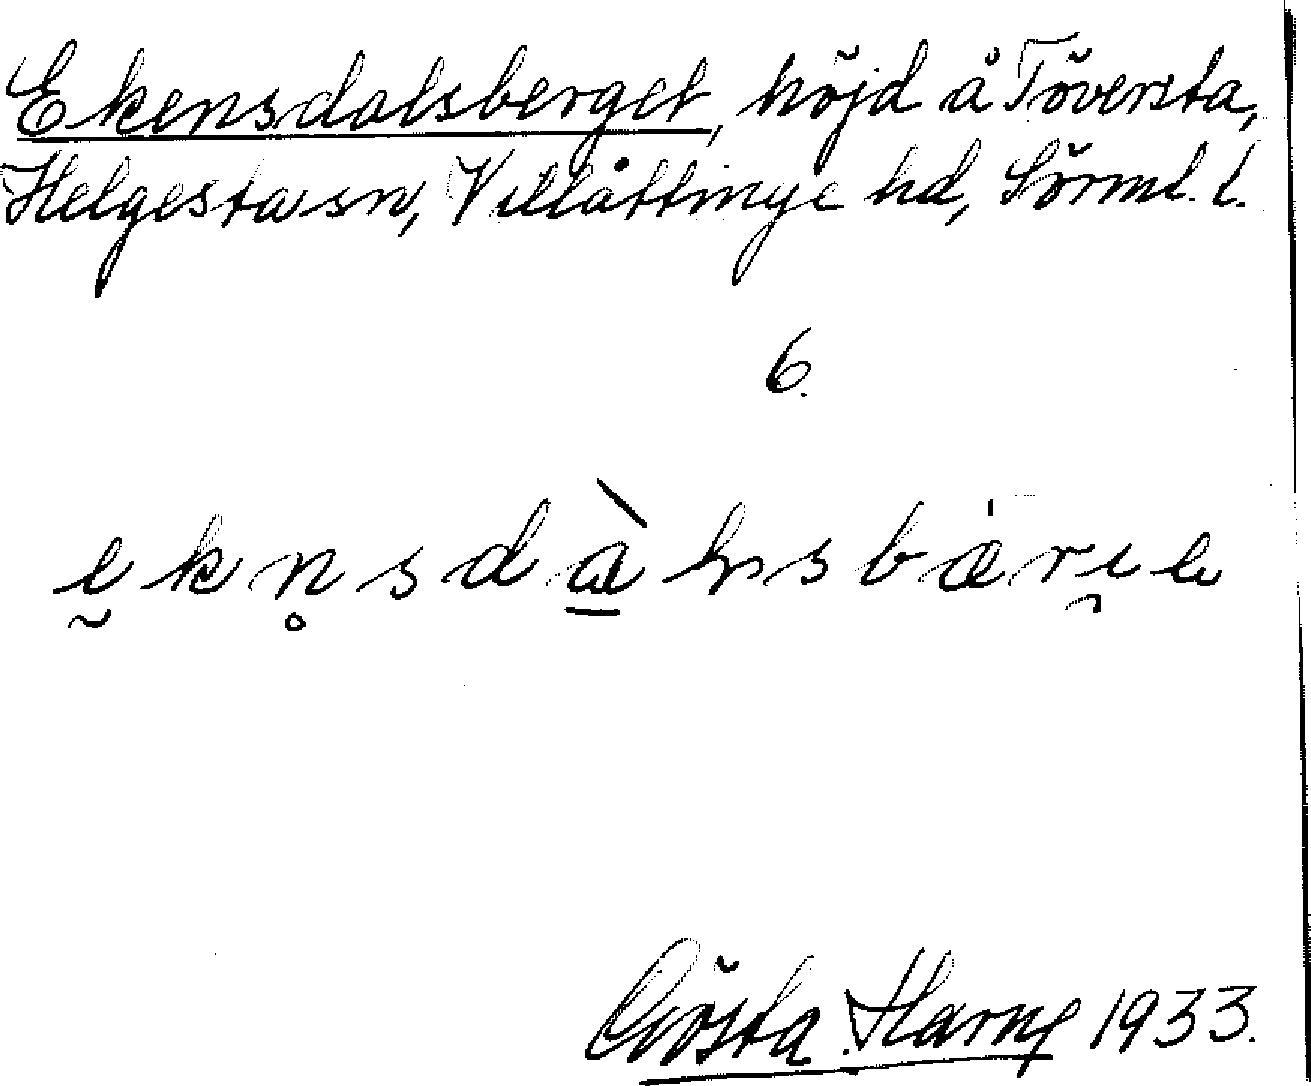 Ekensdalsberget, höjd å Töversta,
Helgesta sn, Villåttinge hd, Sörml. l.
6.
Gösta Harng 1933.